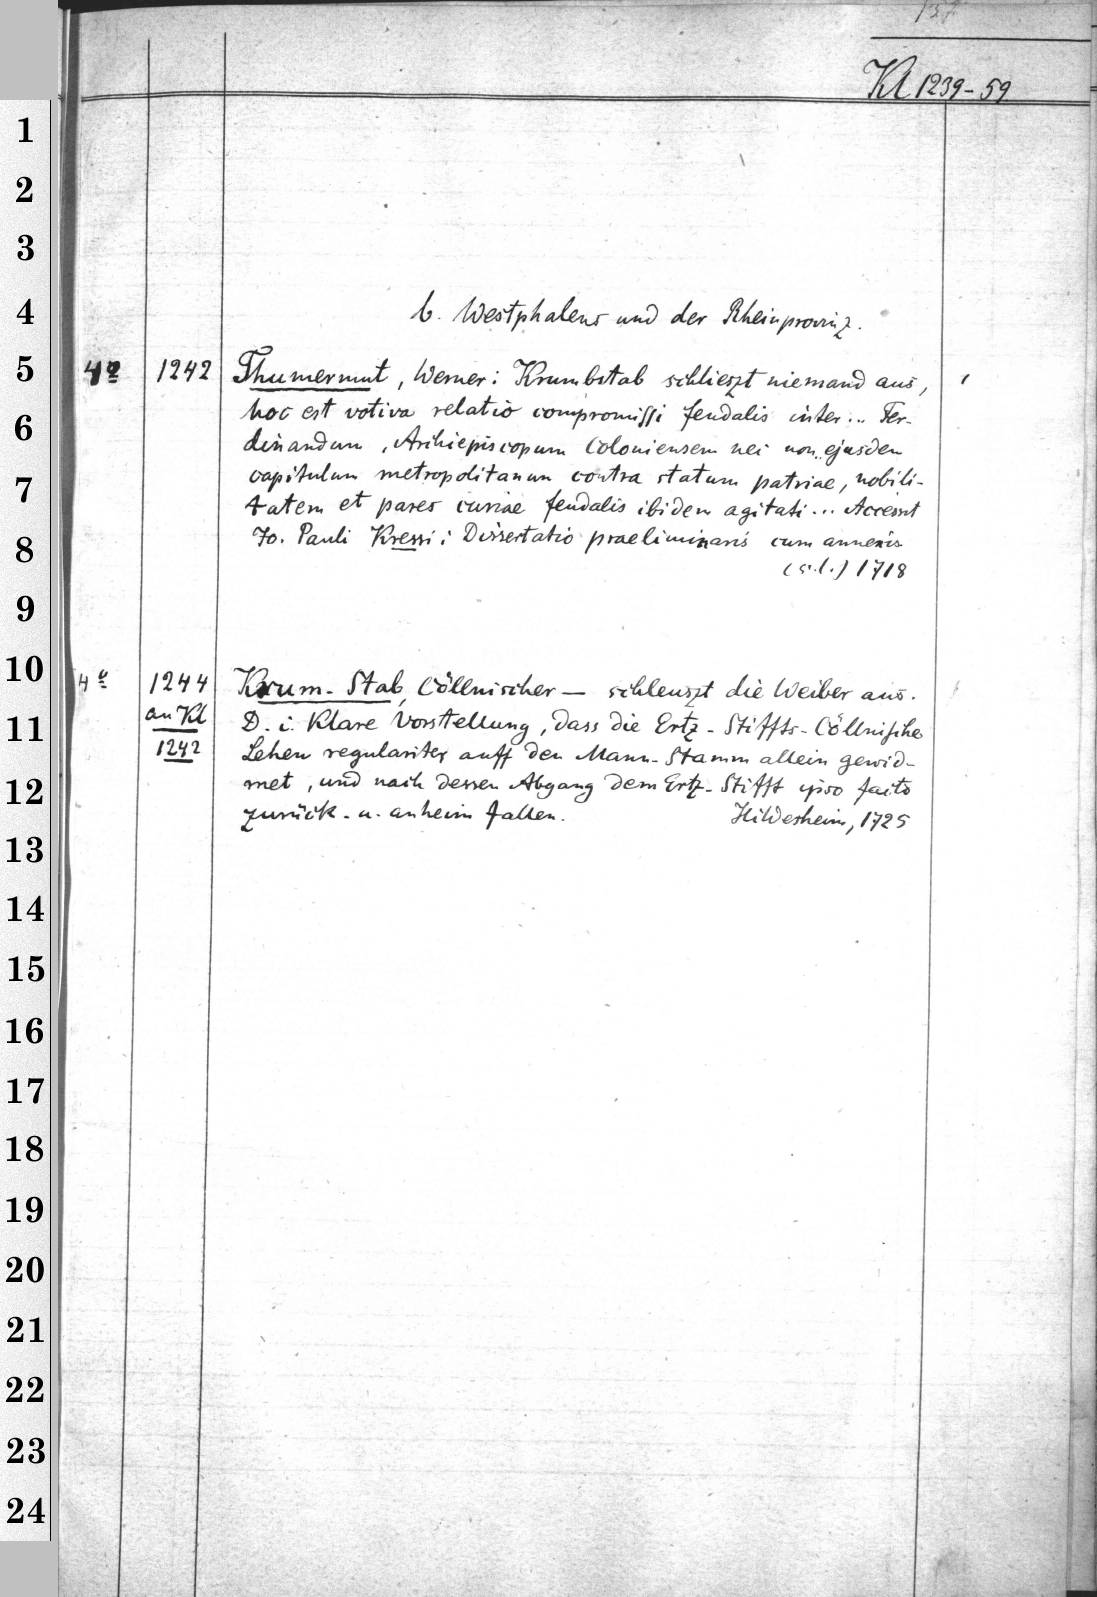 157
Kl 1239-59
1
2
3
4
b. Westphalens und der Rheinprovinz.
5
4º 1242 Thummermut, Werner: Krumbstab schlieszt niemand aus,
hoc est votiva relatio compromissi feudalis inter... Fer-
6
dinandum, Archiepiscopum Coloniensem nec non ejusdem
capitulum metropolitanum contra statum patriae, nobili-
7
tatem et pares curiae feudalis ibidem agitati... Accessit
Jo. Pauli Kressi: Dissertatio praeliminaris cum annexis
8
(s.l.) 1718
9
10
4º 1244 Krum-Stab, Cöllnischer — schleuszt die Weiber aus.
an Kl 1242
11
D. i. Klare Vorstellung, dass die Ertz-Stiffts-Cöllnische
Lehen regulariter auff den Mann-Stamm allein gewid-
12
met, und nach dessen Abgang dem Ertz-Stifft ipso facto
zurück- u. anheim fallen. Hildesheim, 1725
13
14
15
16
17
18
19
20
21
22
23
24